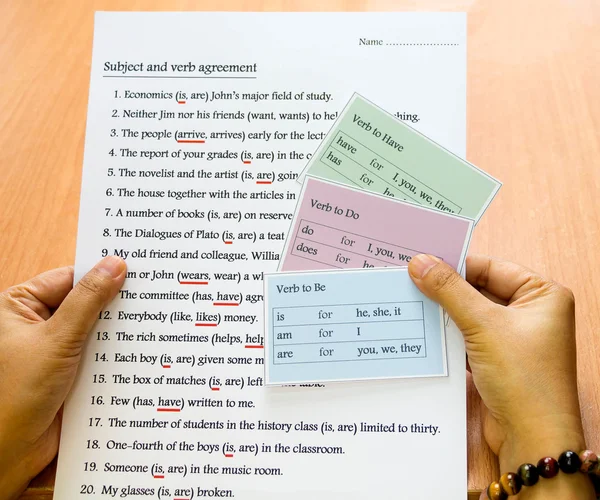 Name ........................
Subject and verb agreement
1. Economics (is, are) John's major field of study.
2. Neither Jim nor his friends (want, wants) to
3. The people (arrive, arrives) early for the
4. The report of your grades (is, are) in the
5. The novelist and the artist (is, are)
6. The house together with the articles in
7. A number of books (is, are) on reserve
8. The Dialogues of Plato (is, are) a
9. My old friend and colleague,
or John (wears, wear) a
The committee (has, have)
12. Everybody (like, likes) money.
13. The rich sometimes (helps,
14. Each boy (is, are) given some
15. The box of matches (is, are) left
16. Few (has, have) written to me.
17. The number of students in the history class (is, are) limited to thirty.
18. One-fourth of the boys (is, are) in the classroom.
19. Someone (is, are) in the music room.
20. My glasses (is, are) broken.
Verb to Have
have for I, you, we, they
has for
Verb to Do
do for I, you, we
does for
Verb to Be
is for he, she, it
am for I
are for you, we, they